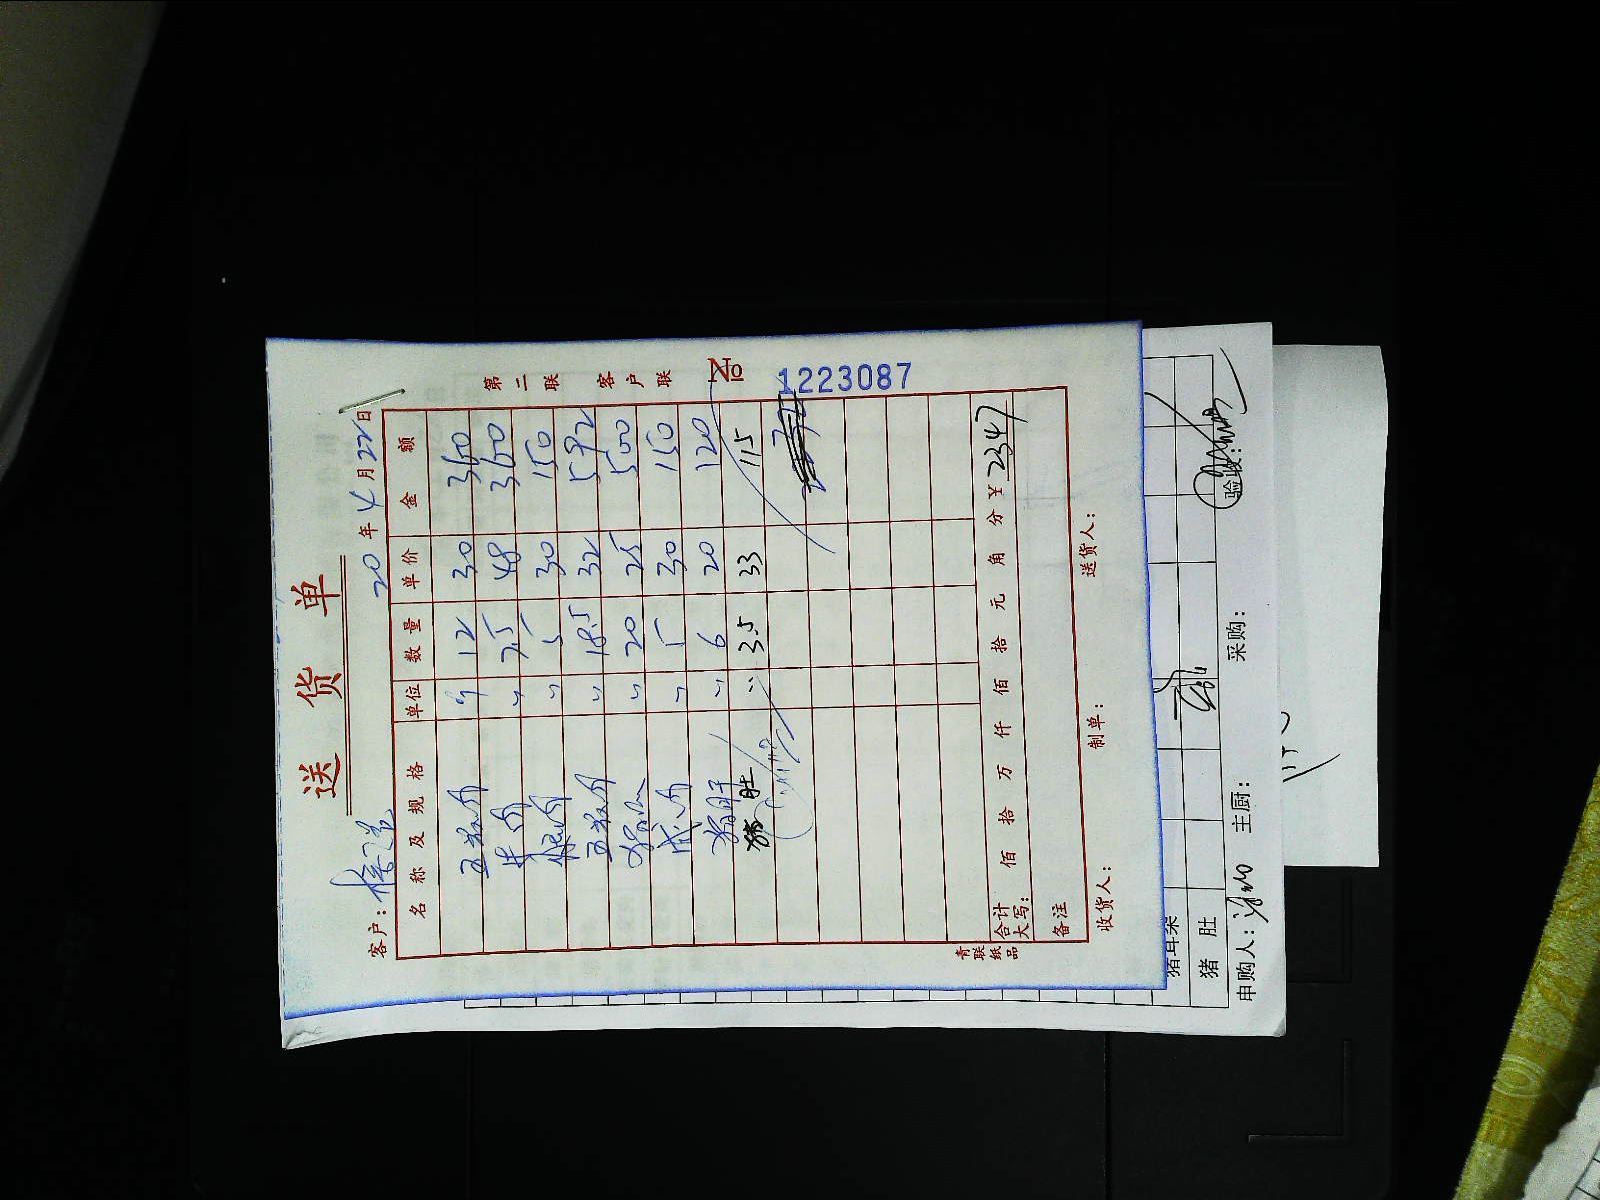 送 货 单
20 年 4 月 22 日
客户：
第二联 客户联 № 1223087
名称及规格 单位 数量 单价 金额
五花肉 斤 12 30 360
牛肉 〃 7.5 48 360
〃 5 30 150
五花肉 〃 18.5 32 592
〃 20 25 500
肉 〃 5 30 150
猪肝 〃 6 20 120
猪肚 〃 3.5 33 115
合计大写： 佰 拾 万 仟 佰 拾 元 角 分 ¥ 2347
备注
收货人： 制单： 送货人：
青联纸品
猪耳朵
猪 肚
申购人： 主厨： 采购： 验收：